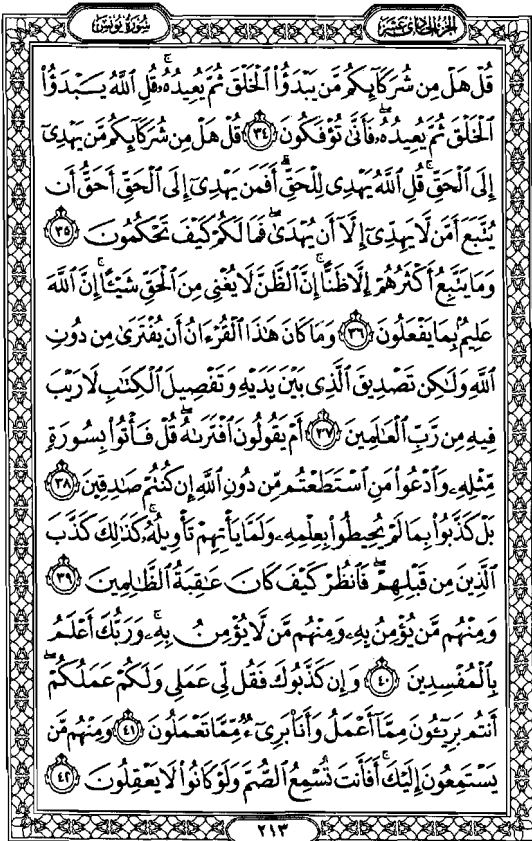 سُورَةُ يُونُسَ
الجُزْءُ الحَادِي عَشَرَ
قُلْ هَلْ مِن شُرَكَآئِكُم مَّن يَبْدَؤُا۟ ٱلْخَلْقَ ثُمَّ يُعِيدُهُۥۚ قُلِ ٱللَّهُ يَبْدَؤُا۟
ٱلْخَلْقَ ثُمَّ يُعِيدُهُۥۖ فَأَنَّىٰ تُؤْفَكُونَ ٣٤ قُلْ هَلْ مِن شُرَكَآئِكُم مَّن يَهْدِىٓ
إِلَى ٱلْحَقِّۚ قُلِ ٱللَّهُ يَهْدِى لِلْحَقِّۗ أَفَمَن يَهْدِىٓ إِلَى ٱلْحَقِّ أَحَقُّ أَن
يُتَّبَعَ أَمَّن لَّا يَهِدِّىٓ إِلَّآ أَن يُهْدَىٰۖ فَمَا لَكُمْ كَيْفَ تَحْكُمُونَ ٣٥
وَمَا يَتَّبِعُ أَكْثَرُهُمْ إِلَّا ظَنًّاۚ إِنَّ ٱلظَّنَّ لَا يُغْنِى مِنَ ٱلْحَقِّ شَيْـًٔاۚ إِنَّ ٱللَّهَ
عَلِيمٌۢ بِمَا يَفْعَلُونَ ٣٦ وَمَا كَانَ هَـٰذَا ٱلْقُرْءَانُ أَن يُفْتَرَىٰ مِن دُونِ
ٱللَّهِ وَلَـٰكِن تَصْدِيقَ ٱلَّذِى بَيْنَ يَدَيْهِ وَتَفْصِيلَ ٱلْكِتَـٰبِ لَا رَيْبَ
فِيهِ مِن رَّبِّ ٱلْعَـٰلَمِينَ ٣٧ أَمْ يَقُولُونَ ٱفْتَرَىٰهُۖ قُلْ فَأْتُوا۟ بِسُورَةٍ
مِّثْلِهِۦ وَٱدْعُوا۟ مَنِ ٱسْتَطَعْتُم مِّن دُونِ ٱللَّهِ إِن كُنتُمْ صَـٰدِقِينَ ٣٨
بَلْ كَذَّبُوا۟ بِمَا لَمْ يُحِيطُوا۟ بِعِلْمِهِۦ وَلَمَّا يَأْتِهِمْ تَأْوِيلُهُۥۚ كَذَٰلِكَ كَذَّبَ
ٱلَّذِينَ مِن قَبْلِهِمْۖ فَٱنظُرْ كَيْفَ كَانَ عَـٰقِبَةُ ٱلظَّـٰلِمِينَ ٣٩
وَمِنْهُم مَّن يُؤْمِنُ بِهِۦ وَمِنْهُم مَّن لَّا يُؤْمِنُ بِهِۦۚ وَرَبُّكَ أَعْلَمُ
بِٱلْمُفْسِدِينَ ٤٠ وَإِن كَذَّبُوكَ فَقُل لِّى عَمَلِى وَلَكُمْ عَمَلُكُمْۖ
أَنتُم بَرِيٓـُٔونَ مِمَّآ أَعْمَلُ وَأَنَا۠ بَرِىٓءٌ مِّمَّا تَعْمَلُونَ ٤١ وَمِنْهُم مَّن
يَسْتَمِعُونَ إِلَيْكَۚ أَفَأَنتَ تُسْمِعُ ٱلصُّمَّ وَلَوْ كَانُوا۟ لَا يَعْقِلُونَ ٤٢
٢١٣